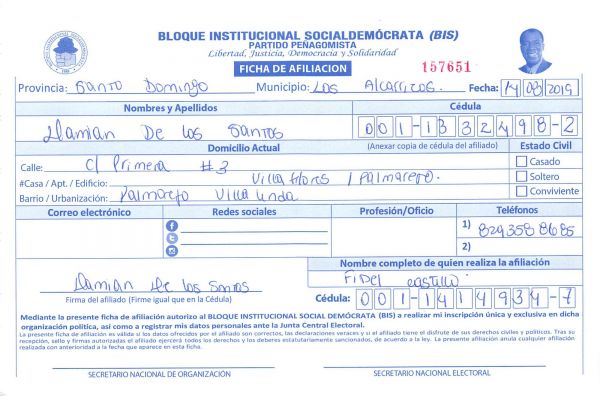 BLOQUE INSTITUCIONAL SOCIALDEMÓCRATA (BIS)
PARTIDO PEÑAGOMISTA
Libertad, Justicia, Democracia y Solidaridad
FICHA DE AFILIACION
157651
Provincia: Santo Domingo Municipio: Los Alcarrizos. Fecha: 14/03/2019
Nombres y Apellidos Cédula
Damian De los Santos 001-1332498-2
Domicilio Actual (Anexar copia de cédula del afiliado) Estado Civil
Calle: C/ Primera #3 Casado
#Casa / Apt. / Edificio: Villa Flores / Palmarejo. Soltero
Barrio / Urbanización: Palmarejo Villa Linda Conviviente
Correo electrónico Redes sociales Profesión/Oficio Teléfonos
1) 829 358 8685
2)
Nombre completo de quien realiza la afiliación
Damian De los Santos Fidel Castillo
Firma del afiliado (Firme igual que en la Cédula) Cédula: 001-1414934-7
Mediante la presente ficha de afiliación autorizo al BLOQUE INSTITUCIONAL SOCIAL DEMÓCRATA (BIS) a realizar mi inscripción única y exclusiva en dicha
organización política, así como a registrar mis datos personales ante la Junta Central Electoral.
La presente ficha de afiliación es válida si los datos ofrecidos por el afiliado son correctos, las declaraciones veraces y si el afiliado tiene el disfrute de sus derechos civiles y políticos. Tras su
recepción, sello y firmas autorizadas el afiliado ejercerá todos los derechos y los deberes estatutariamente sancionados, de acuerdo a la ley. La presente afiliación anula cualquier afiliación
realizada con anterioridad a la fecha que aparece en esta ficha.
SECRETARIO NACIONAL DE ORGANIZACIÓN SECRETARIO NACIONAL ELECTORAL